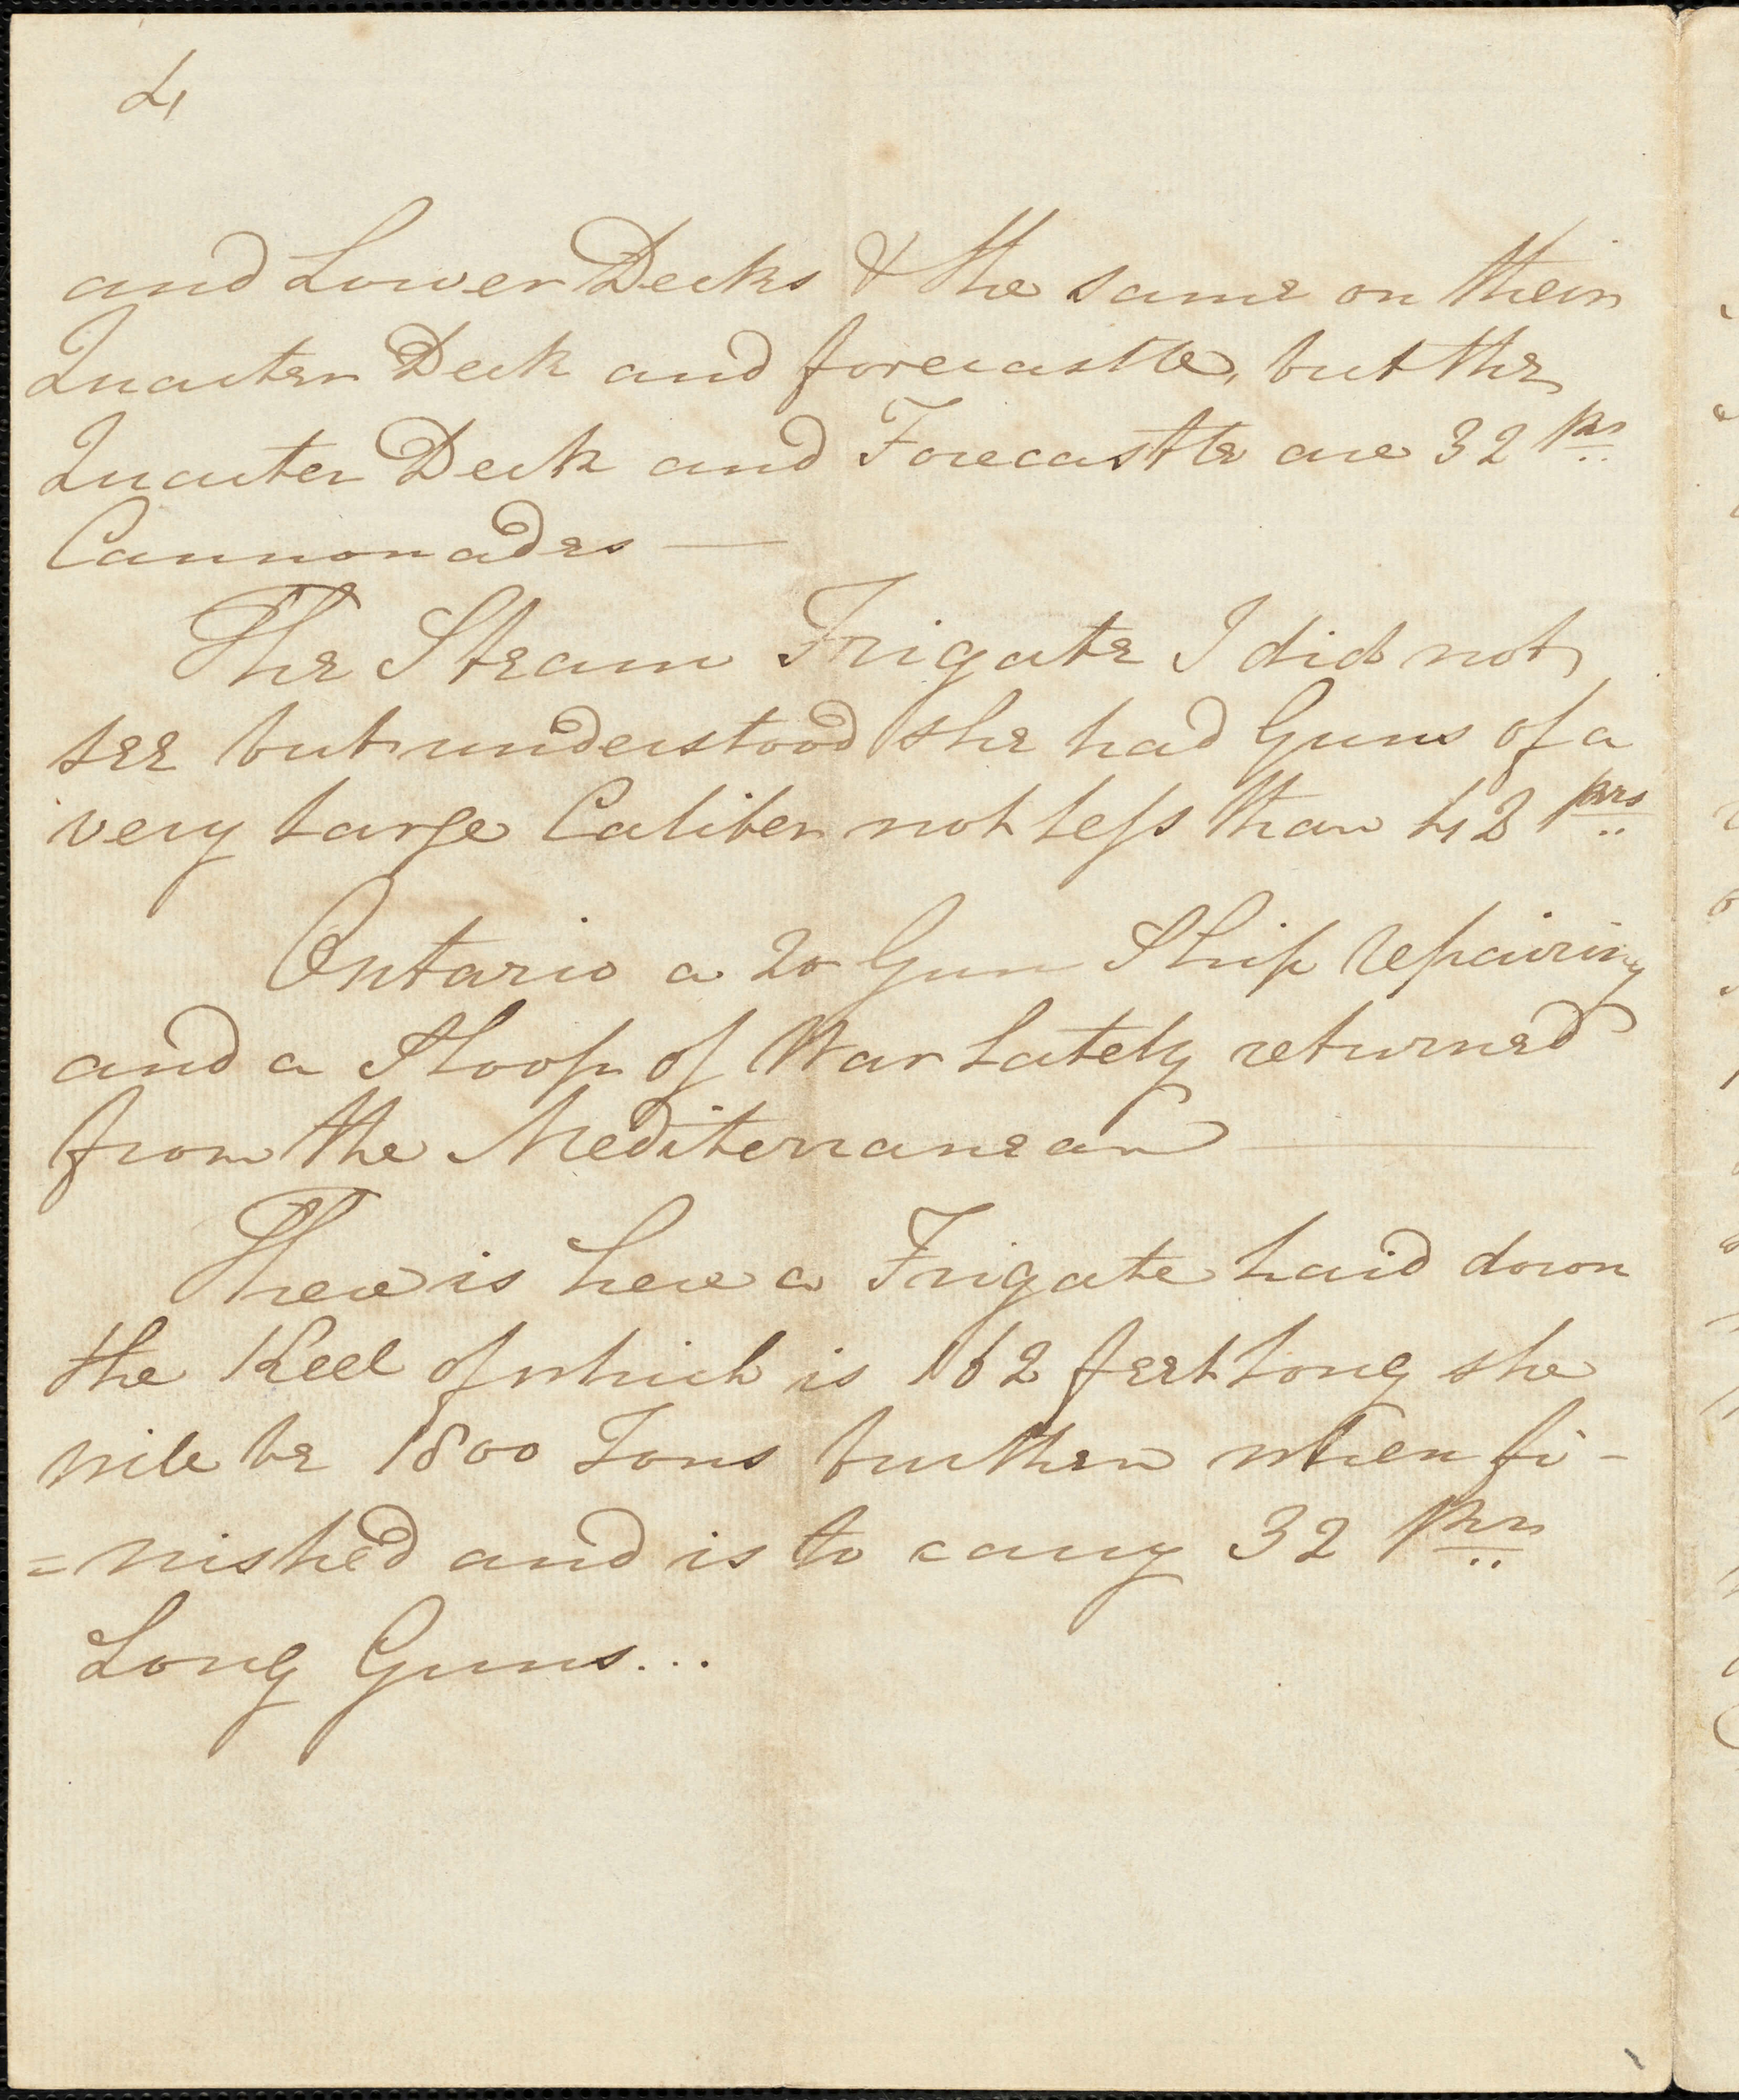 4
and Lower Decks & the same on their
Quarter Deck and forecastle, but the
Quarter Deck and Forecastle are 32 prs
Cannonades —
The Steam Frigate I did not
see but understood she had Guns of a
very large Caliber not less than 42 prs
Ontario a 20 Gun Ship repairing
and a Sloop of War lately returned
from the Mediterranean —
There is here a Frigate laid down
the Keel of which is 162 feet long she
will be 1800 Tons burthen when fi-
=nished and is to carry 32 Prs
Long Guns...